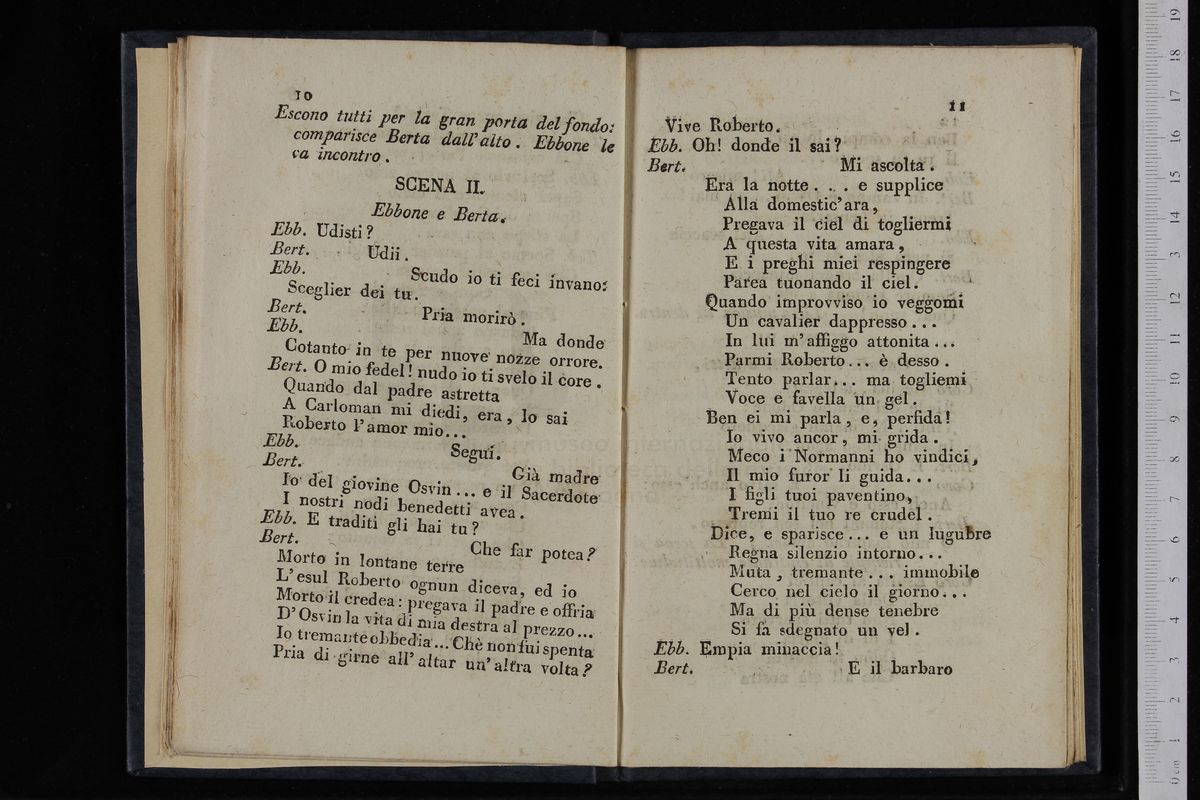 10
Escono tutti per la gran porta del fondo:
comparisce Berta dall'alto. Ebbone le
va incontro.
SCENA II.
Ebbone e Berta.
Ebb. Udisti?
Bert. Udii.
Ebb. Scudo io ti feci invano:
Sceglier dei tu.
Bert. Pria morirò.
Ebb. Ma donde
Cotanto in te per nuove nozze orrore.
Bert. O mio fedel! nudo io ti svelo il core.
Quando dal padre astretta
A Carloman mi diedi, era, lo sai
Roberto l'amor mio...
Ebb. Seguí.
Bert. Già madre
Io del giovine Osvin... e il Sacerdote
I nostri nodi benedetti avea.
Ebb. E traditi gli hai tu?
Bert. Che far potea?
Morto in lontane terre
L'esul Roberto ognun diceva, ed io
Morto il credea: pregava il padre e offria
D'Osvin la vita di mia destra al prezzo...
Io tremante obbedia... Chè non fui spenta
Pria di girne all'altar un'altra volta?
11
Vive Roberto.
Ebb. Oh! donde il sai?
Bert. Mi ascolta.
Era la notte... e supplice
Alla domestic'ara,
Pregava il ciel di togliermi
A questa vita amara,
E i preghi miei respingere
Parea tuonando il ciel.
Quando improvviso io veggomi
Un cavalier dappresso...
In lui m'affiggo attonita...
Parmi Roberto... è desso.
Tento parlar... ma togliemi
Voce e favella un gel.
Ben ei mi parla, e, perfida!
Io vivo ancor, mi grida.
Meco i Normanni ho vindici,
Il mio furor li guida...
I figli tuoi paventino,
Tremi il tuo re crudel.
Dice, e sparisce... e un lugubre
Regna silenzio intorno...
Muta, tremante... immobile
Cerco nel cielo il giorno...
Ma di più dense tenebre
Si fa sdegnato un vel.
Ebb. Empia minaccia!
Bert. E il barbaro